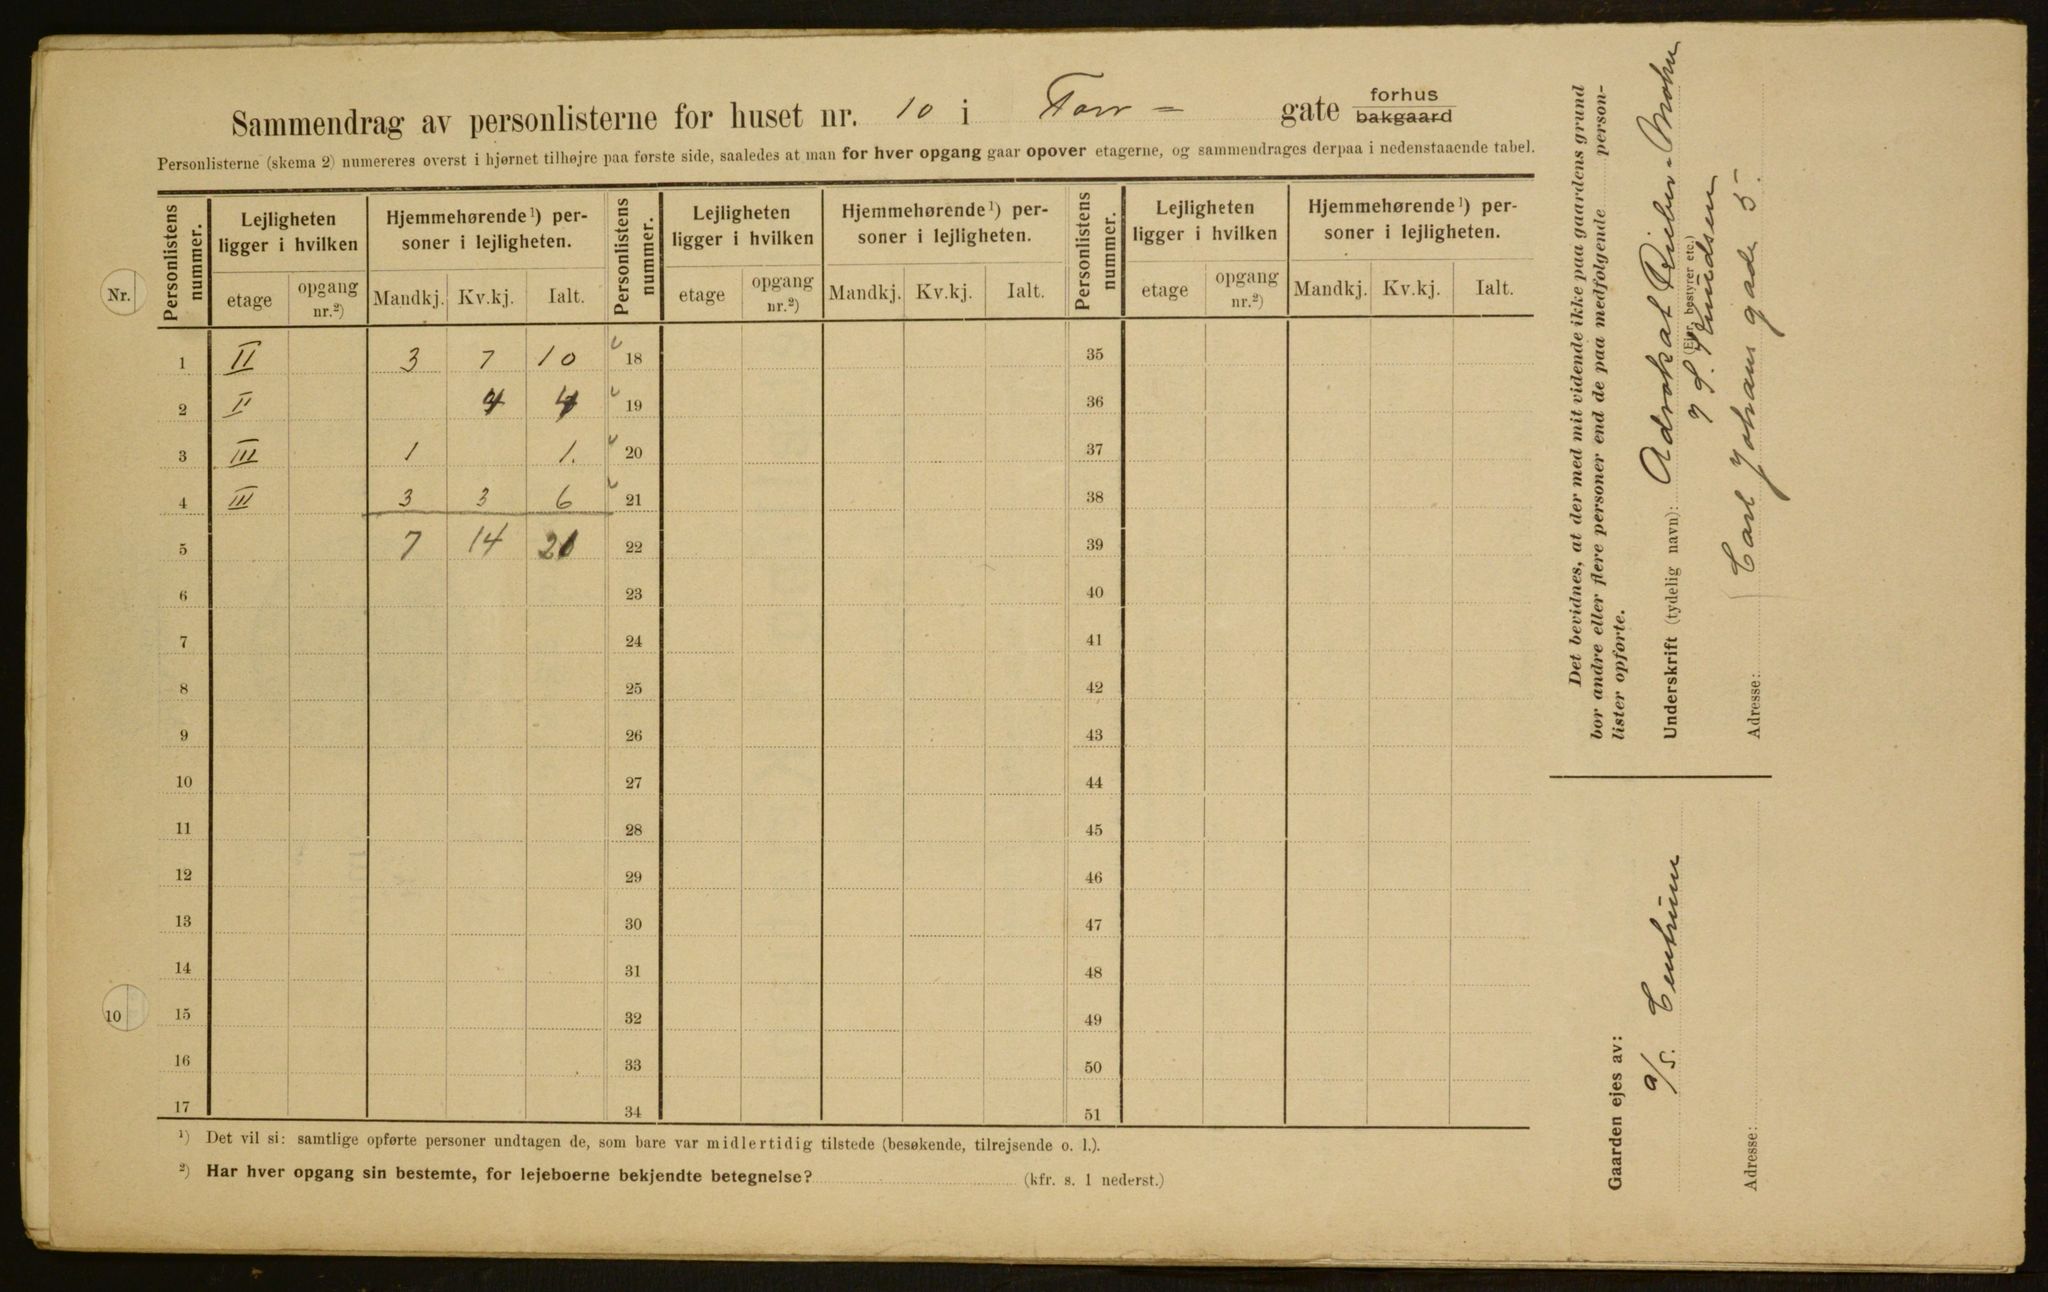 Sammendrag av personlisterne for huset nr. 10 i Torv - gate forhus
bakgaard
Personlisterne (skema 2) numereres øverst i hjørnet tilhøjre paa første side, saaledes at man for hver opgang gaar opover etagerne, og sammendrages derpaa i nedenstaaende tabel.
Personlistens nummer. Lejligheten ligger i hvilken Hjemmehørende¹) personer i lejligheten. Personlistens nummer. Lejligheten ligger i hvilken Hjemmehørende¹) personer i lejligheten. Personlistens nummer. Lejligheten ligger i hvilken Hjemmehørende¹) personer i lejligheten.
Nr. etage opgang nr.²) Mandkj. Kv.kj. Ialt. etage opgang nr.²) Mandkj. Kv.kj. Ialt. etage opgang nr.²) Mandkj. Kv.kj. Ialt.
1 II 3 7 10 18 35
2 II 4 4 19 36
3 III 1 1. 20 37
4 III 3 3 6 21 38
5 7 14 21 22 39
6 23 40
7 24 41
8 25 42
9 26 43
10 27 44
11 28 45
12 29 46
13 30 47
14 31 48
10 15 32 49
16 33 50
17 34 51
¹) Det vil si: samtlige opførte personer undtagen de, som bare var midlertidig tilstede (besøkende, tilrejsende o. l.).
²) Har hver opgang sin bestemte, for lejeboerne bekjendte betegnelse? (kfr. s. 1 nederst.)
Det bevidnes, at der med mit vidende ikke paa gaardens grund
bor andre eller flere personer end de paa medfølgende personlister opførte.
Underskrift (tydelig navn): Advokat Rieber-Mohn
(Ejer, bestyrer etc.)
Adresse: Carl Johans gade 5.
Gaarden ejes av:
a/s. Centrum
Adresse: